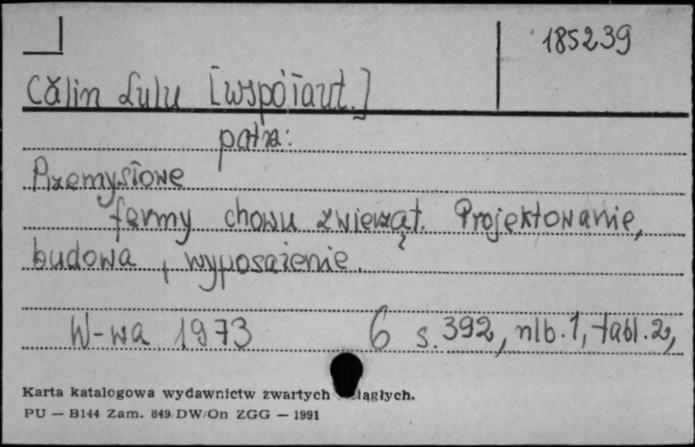 185239
Călin Lulu [współaut.]
patrz:
Przemysłowe
fermy chowu zwierząt. Projektowanie,
budowa, wyposażenie.
W-wa 1973 6 s. 392, nlb. 1, tabl. 2,
Karta katalogowa wydawnictw zwartych ciągłych.
PU — B144 Zam. 849/DW/On ZGG — 1991